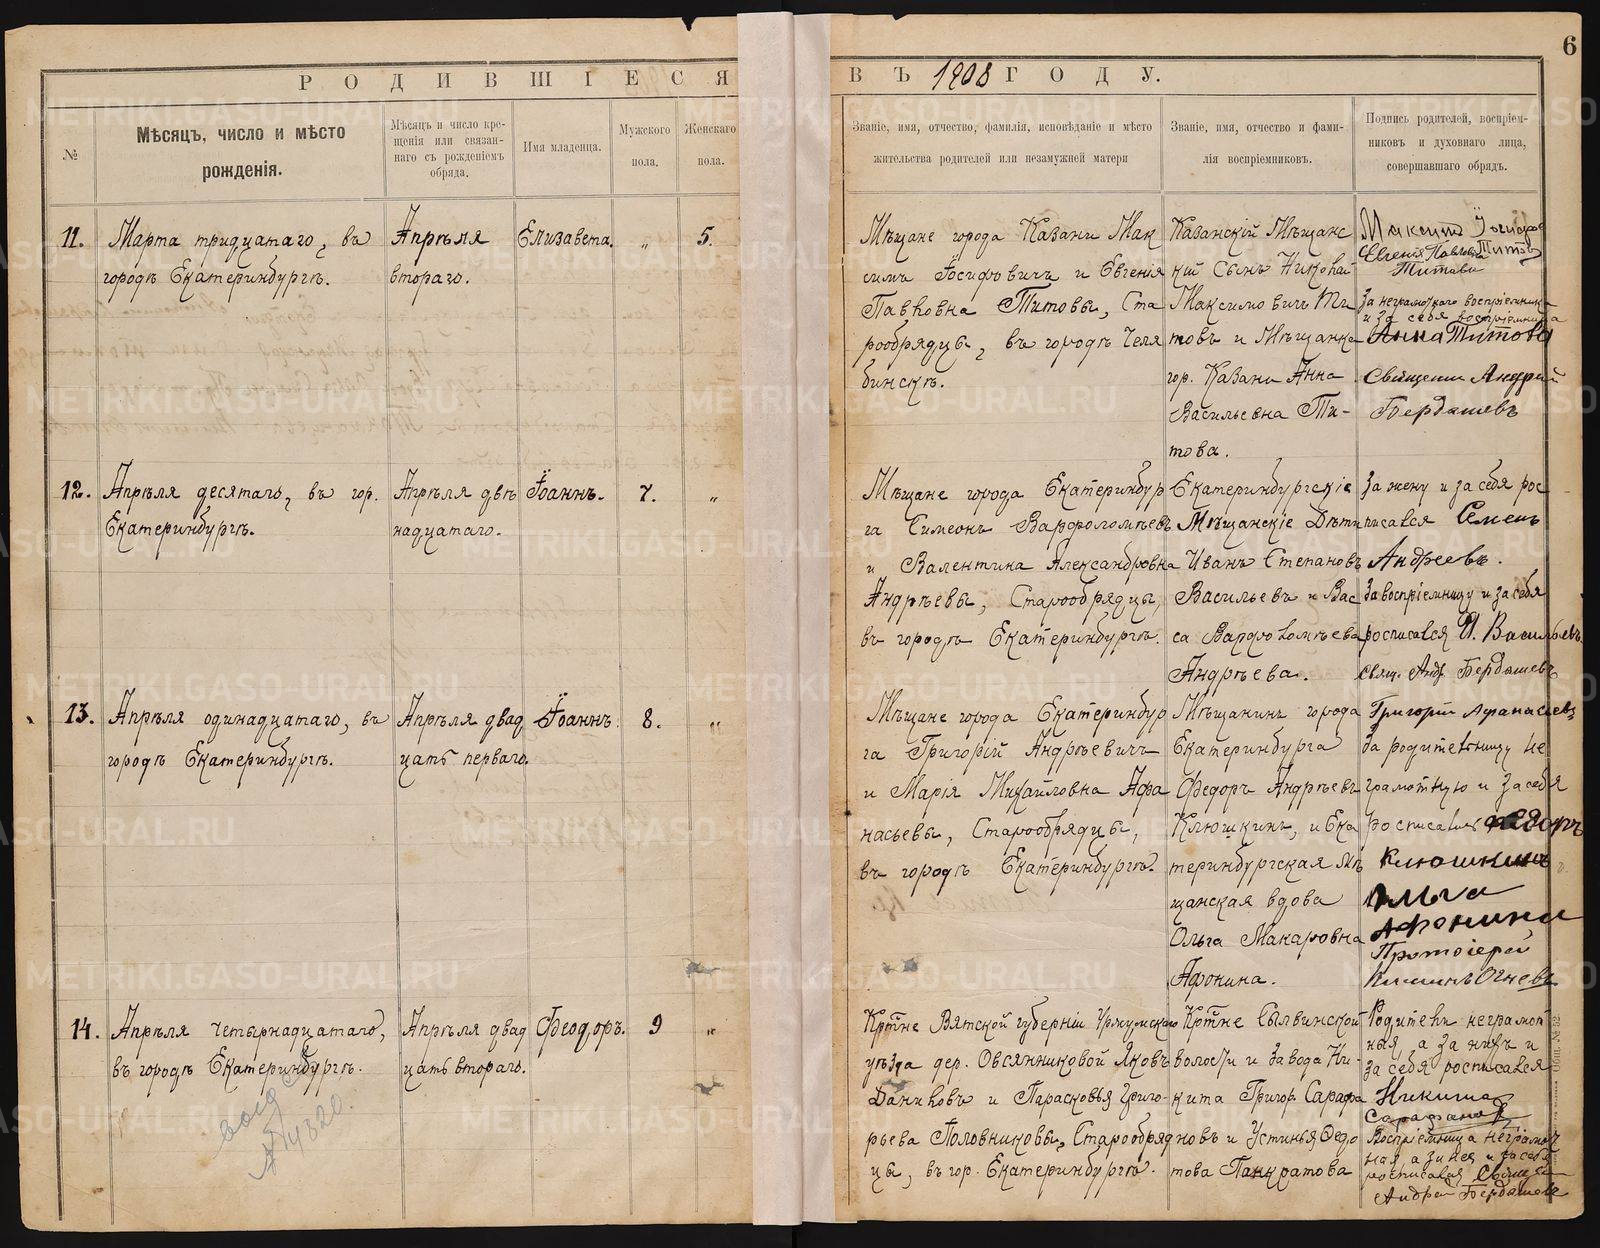 6
РОДИВШІЕСЯ ВЪ 1908 ГОДУ.
№
Мѣсяцъ, число и мѣсто
рожденія.
Мѣсяцъ и число кре-
щенія или связан-
наго съ рожденіемъ
обряда.
Имя младенца.
Мужского
пола.
Женскаго
пола.
Званіе, имя, отчество, фамилія, исповѣданіе и мѣсто
жительства родителей или незамужней матери
Званіе, имя, отчество и фами-
лія воспріемниковъ.
Подпись родителей, воспріем-
никовъ и духовнаго лица,
совершавшаго обрядъ.
11.
Марта тридцатаго, въ
городѣ Екатеринбургѣ.
Апрѣля
втораго.
Елизавета.
„
5.
Мѣщане города Казани Мак
симъ Іосифовичъ и Евгенія
Павловна Титовы, Ста
рообрядцы, въ городѣ Челя
бинскѣ.
Казанскій Мѣщанс
кій Сынъ Николай
Максимовичъ Ти
товъ и Мѣщанка
гор. Казани Анна
Васильевна Ти-
това.
Максимъ
Евгенія Павловна
Титовы
За неграмотнаго воспріемника
и за себя воспріемница
Анна Титова
Священ. Андрей
Бердышевъ
12.
Апрѣля десятаго, въ гор.
Екатеринбургѣ.
Апрѣля двѣ
надцатаго.
Іоаннъ.
7.
„
Мѣщане города Екатеринбур
га Симеонъ Варфоломѣевъ
и Валентина Александровна
Андрѣевы, Старообрядцы,
въ городѣ Екатеринбургѣ.
Екатеринбургскіе
Мѣщанскіе Дѣти
Иванъ Степановъ
Васильевъ и Вас
са Варфоломѣева
Андрѣева.
За жену и за себя рос
писался Семенъ
Андреевъ.
За воспріемницу и за себя
росписался И. Васильевъ
свящ. Андр. Бердышевъ
13.
Апрѣля одинадцатаго, въ
городѣ Екатеринбургѣ.
Апрѣля двад
цать перваго.
Іоаннъ.
8.
„
Мѣщане города Екатеринбур
га Григорій Андрѣевичъ
и Марія Михайловна Афа
насьевы, Старообрядцы,
въ городѣ Екатеринбургѣ.
Мѣщанинъ города
Екатеринбурга
Федоръ Андрѣевъ
Клюшкинъ, и Ека
теринбургская мѣ
щанская вдова
Ольга Макаровна
Афонина.
Григорій Афанасьевъ
За родительницу не
грамотную и за себя
росписался Федоръ
Клюшкинъ
Ольга
Афонина
Протоіерей
Огневъ
14.
Апрѣля четырнадцатаго,
въ городѣ Екатеринбургѣ.
Апрѣля двад
цать втораго.
Феодоръ.
9
„
Крт̃не Вятской губерніи Уржумскаго
уѣзда дер. Овсянниковой Яковъ
Даниловъ и Парасковья Григо-
рьева Половниковы, Старообряд
цы, въ гор. Екатеринбургѣ.
Крт̃не Сылвинской
волости и завода Ни-
кита Григор. Сарафа
новъ и Устинья Федо
това Панкратова
Родители неграмот
ныя, а за нихъ и
за себя росписался
Никита
Сарафановъ
Воспріемница неграмот
ная а за нея и за себя
росписался Свящ.
Андрей Бердышевъ
METRIKI.GASO-URAL.RU